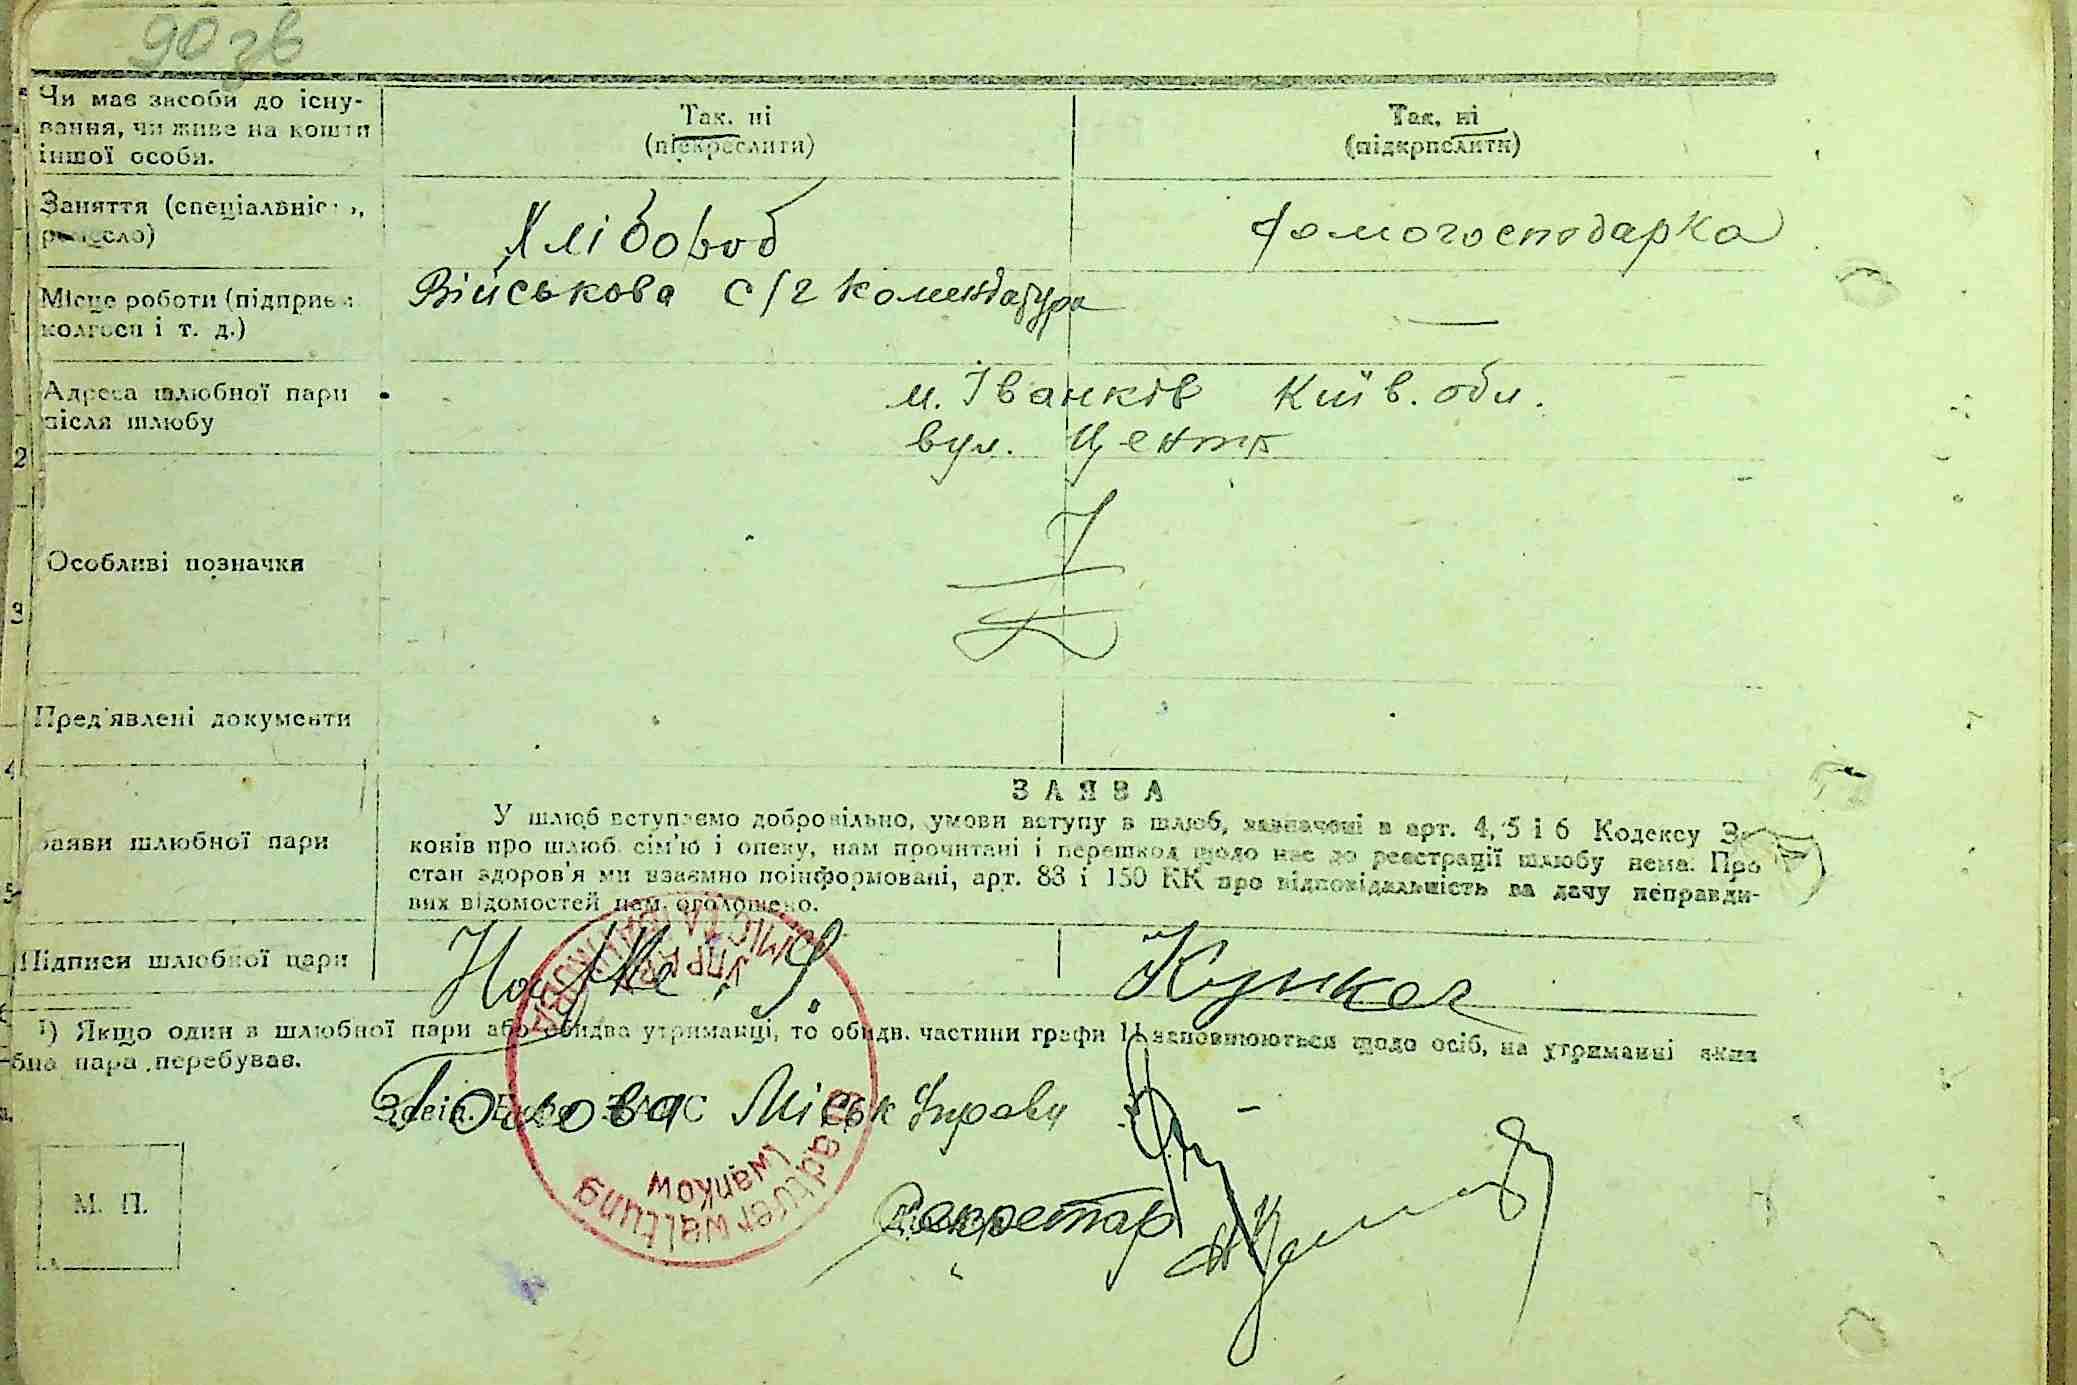 90 зв
Чи має засоби до існу-
вання, чи живе на кошти
іншої особи.
Так. ні
(підкреслити)
Так, ні
(підкрпслити)
Заняття (спеціальніс ,
ремесло)
Хлібороб
Домогосподарка
Місце роботи (підприєм
колгосп і т. д.)
Військова с/г комендатура
—
Адреса шлюбної пари
після шлюбу
м. Іванків Київ. обл.
вул. Центр
Особливі позначки
Пред'явлені документи
ЗАЯВА
Заяви шлюбної пари
У шлюб вступаємо добровільно, умови вступу в шлюб, зазначені в арт. 4, 5 і 6 Кодексу За-
конів про шлюб. сім'ю і опеку, нам прочитані і перешкод щодо нас до реєстрації шлюбу нема. Про
стан здоров'я ми взаємно поінформовані, арт. 83 і 150 КК про відповідальність за дачу неправди-
вих відомостей нам оголошено.
Підписи шлюбної пари
¹) Якщо один з шлюбної пари або обидва утриманці, то обидв. частини графи 11 заповнюються щодо осіб, на утриманні яких
бна пара перебуває.
Голова Міськ Управи
Секретар
М. П.
Stadtverwaltung
Iwankow